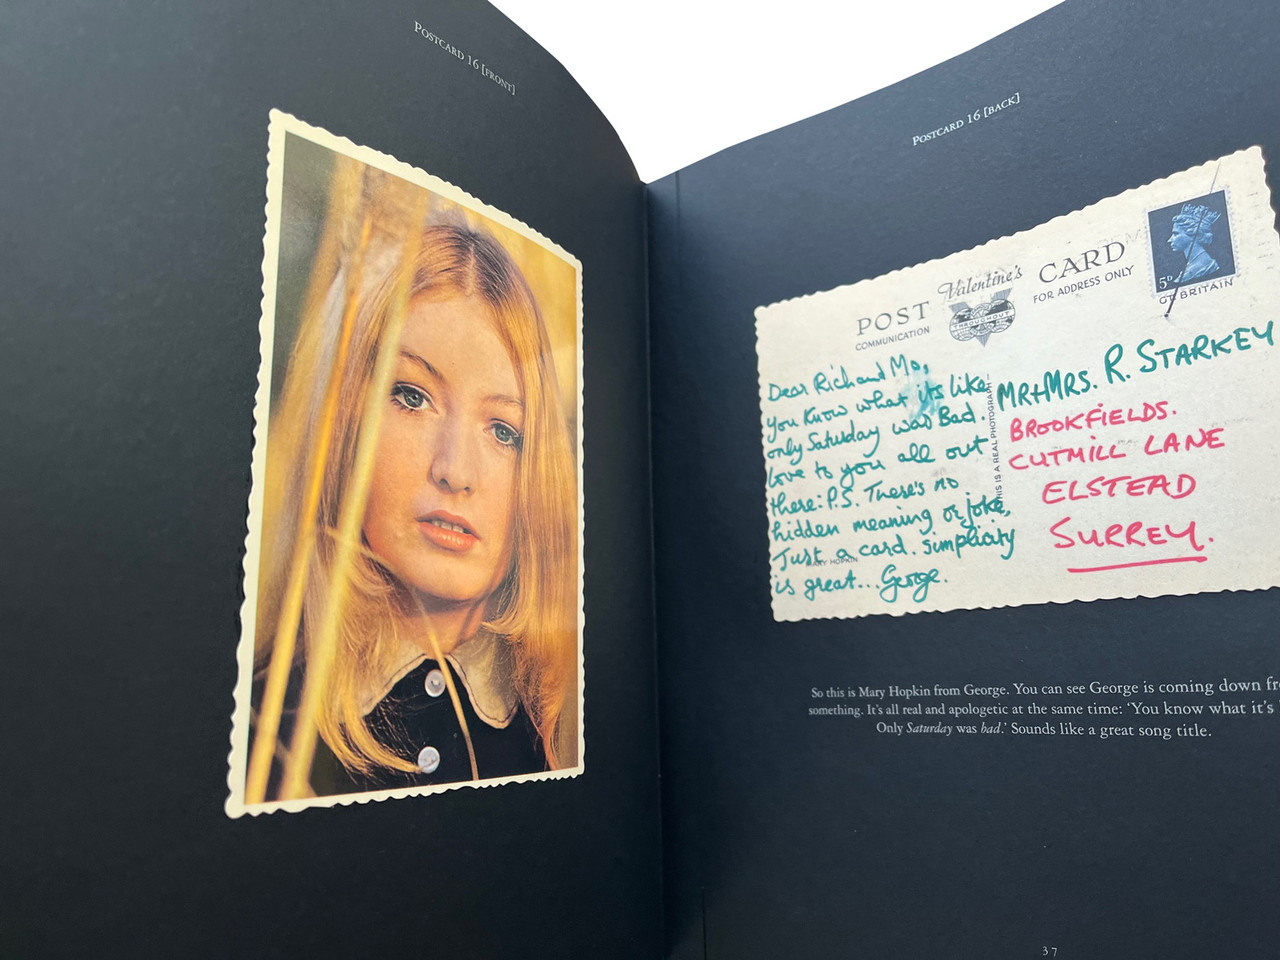 POSTCARD 16 [FRONT]
POSTCARD 16 [BACK]
POST
Valentine's
CARD
COMMUNICATION
THROUGHOUT
FOR ADDRESS ONLY
5D
GT. BRITAIN
Dear Rich and Mo,
You know what its like
only Saturday was Bad.
love to you all out
there: P.S. There's no
hidden meaning or joke,
Just a card. simplicity
is great... George.
MARY HOPKIN
THIS IS A REAL PHOTOGRAPH
MR+MRS. R. STARKEY
BROOKFIELDS.
CUTMILL LANE
ELSTEAD
SURREY.
So this is Mary Hopkin from George. You can see George is coming down
something. It's all real and apologetic at the same time: 'You know what it's
Only Saturday was bad.' Sounds like a great song title.
37